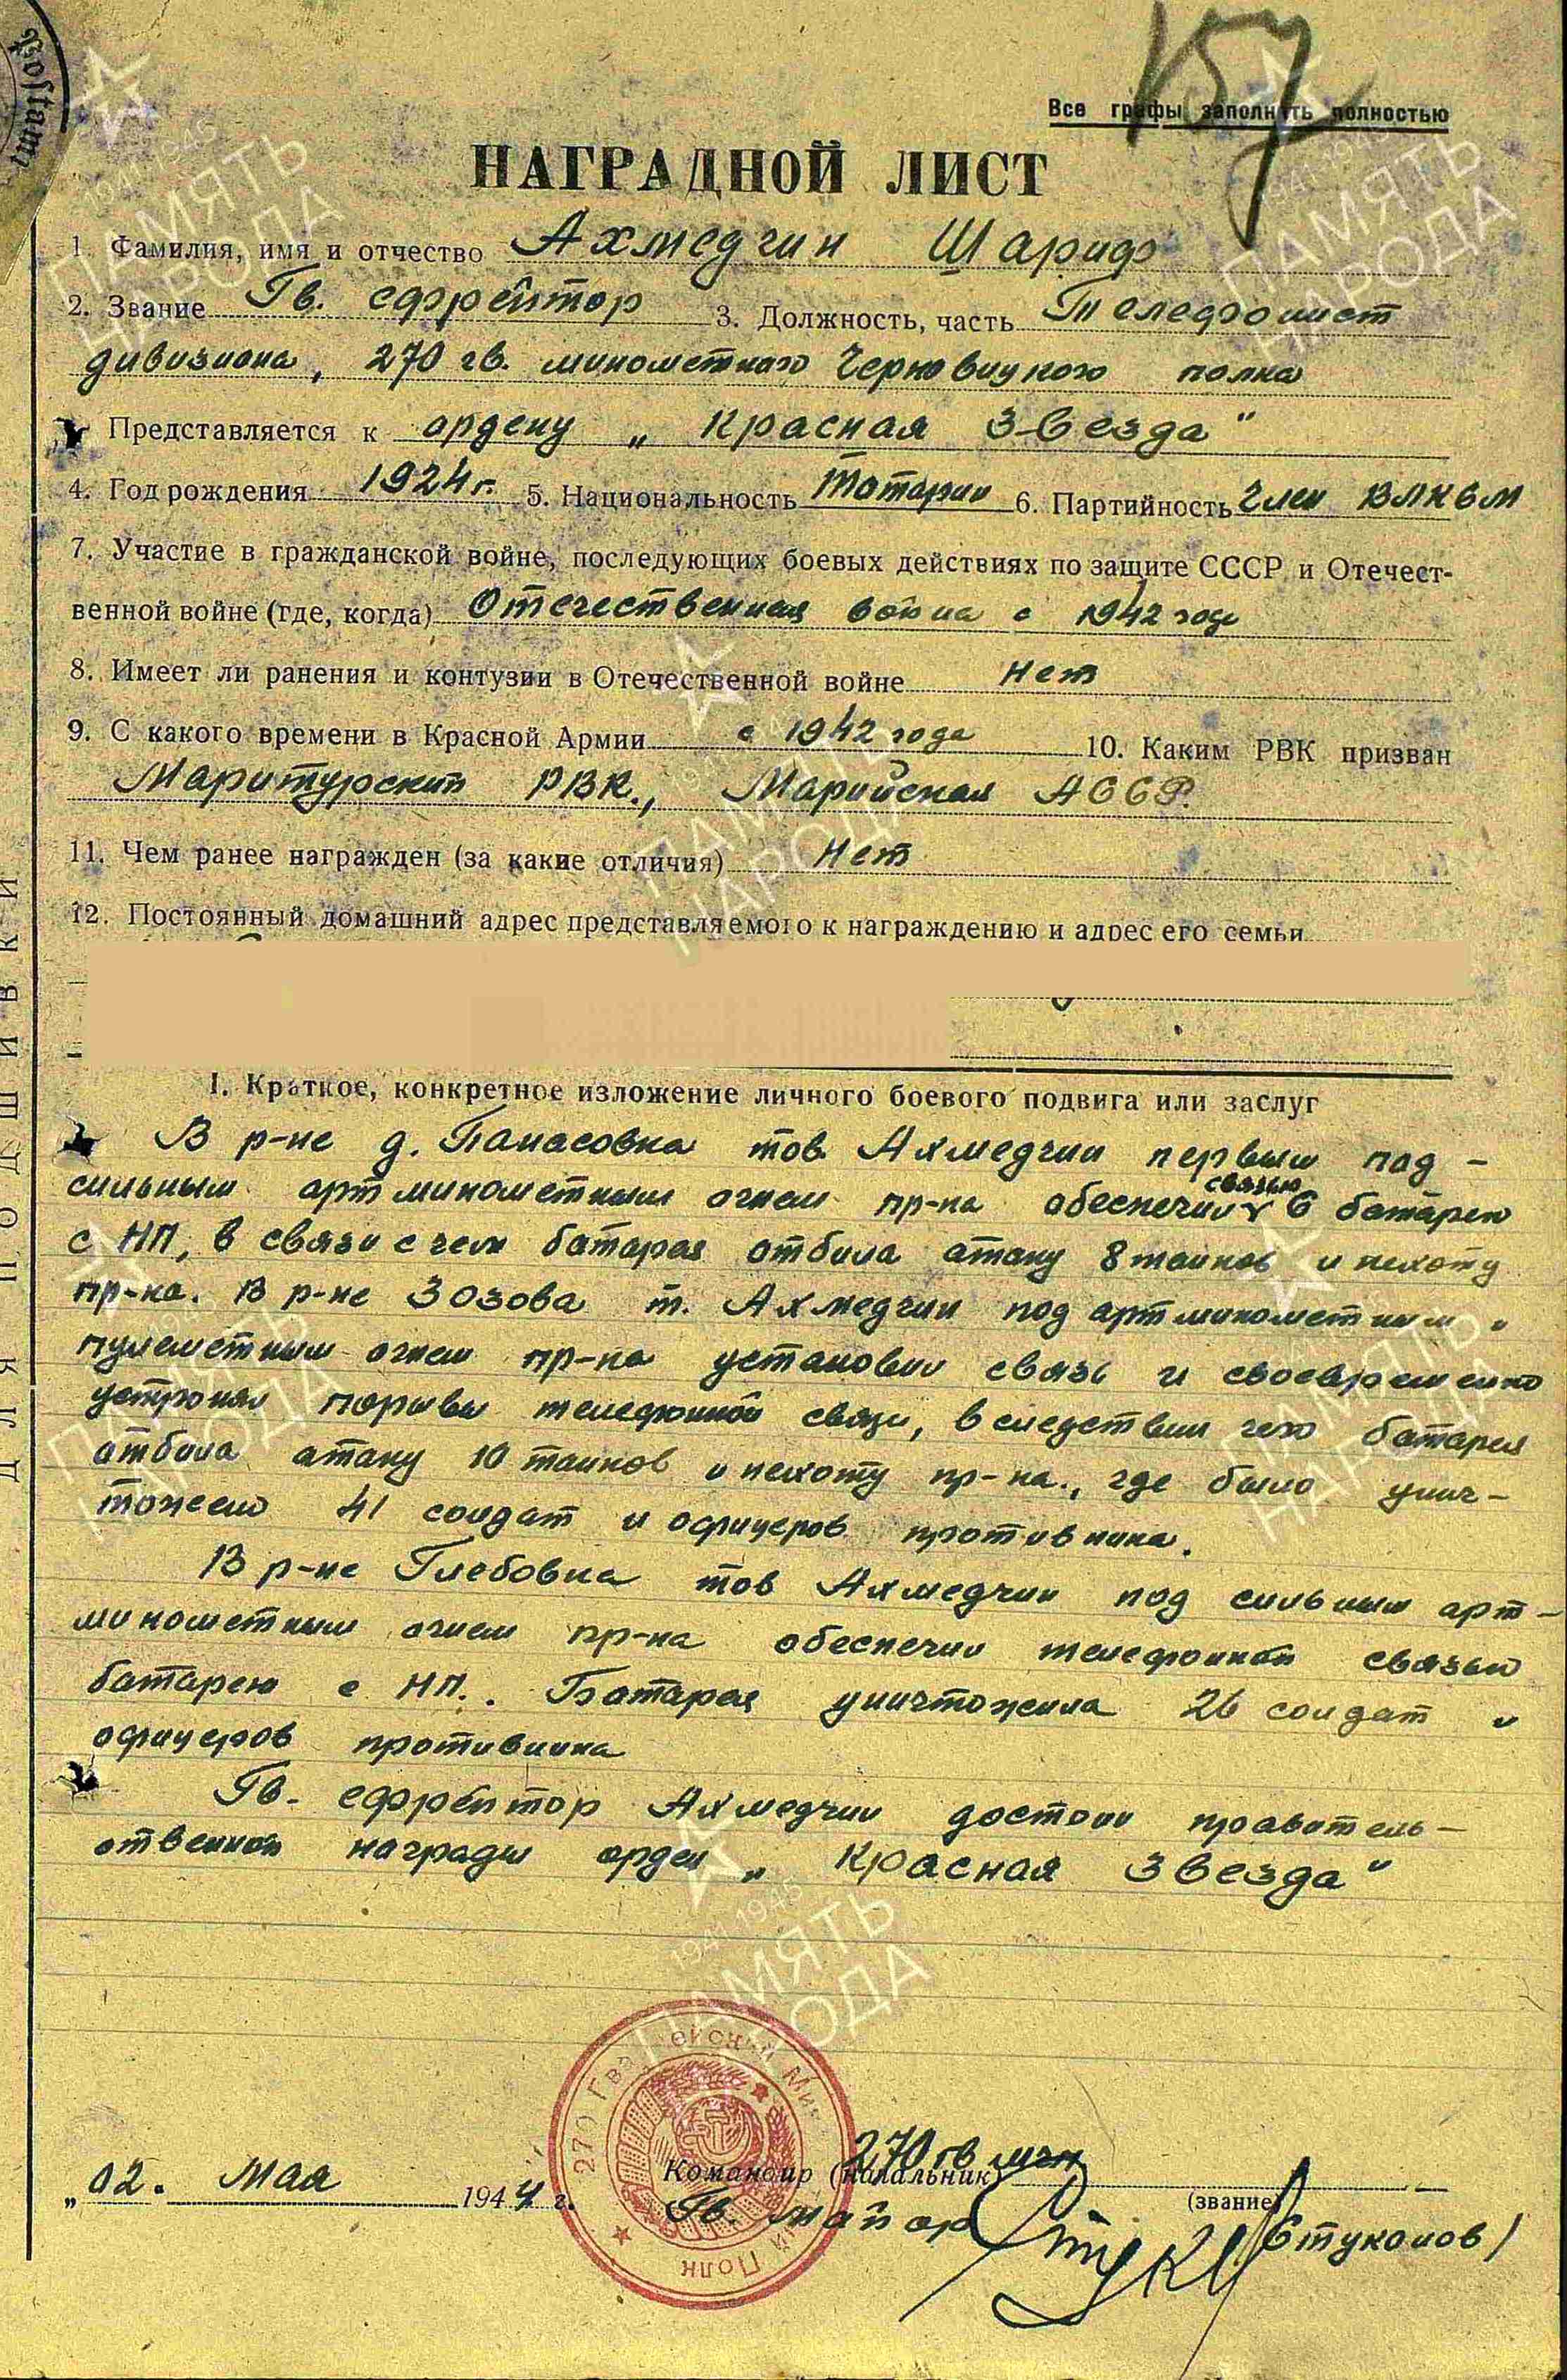 Postamt
157
Все графы заполнять полностью
НАГРАДНОЙ ЛИСТ
1. Фамилия, имя и отчество Ахмедчин Шариф
2. Звание Гв. ефрейтор 3. Должность, часть Телефонист
дивизиона, 270 гв. минометного Черновицкого полка
Представляется к ордену „Красная Звезда"
4. Год рождения 1924 г. 5. Национальность Татарин 6. Партийность Член ВЛКСМ
7. Участие в гражданской войне, последующих боевых действиях по защите СССР и Отечест-
венной войне (где, когда) Отечественная война с 1942 года
8. Имеет ли ранения и контузии в Отечественной войне Нет
9. С какого времени в Красной Армии с 1942 года 10. Каким РВК призван
Маритурский РВК., Марийская АССР.
11. Чем ранее награжден (за какие отличия) Нет
12. Постоянный домашний адрес представляемого к награждению и адрес его семьи
I. Краткое, конкретное изложение личного боевого подвига или заслуг
В р-не д. Панасовка тов. Ахмедчин первым под -
сильным артминометным огнем пр-ка обеспечил связью 6 батарею
с НП, в связи с чем батарея отбила атаку 8 танков и пехоту
пр-ка. В р-не Зозова т. Ахмедчин под артминометным и
пулеметным огнем пр-ка установил связь и своевременно
устронял порывы телефонной связи, вследствии чего батарея
отбила атаку 10 танков и пехоту пр-ка., где было унич-
тожено 41 солдат и офицеров противника.
В р-не Глебовка тов Ахмедчин под сильным арт-
минометным огнем пр-ка обеспечил телефонной связью
батарею с НП.. Батарея уничтожила 26 солдат и
офицеров противника
Гв. ефрейтор Ахмедчин достоин правитель-
ственной награды орден „Красная Звезда"
„02. Мая 1944 г.
270 гв мчп
Командир (начальник)
(звание)
Гв. майор Стук (Стуколов)
270 Гвардейский Мин ный Полк
ДЛЯ ПОДШИВКИ
1941 1945
ПАМЯТЬ
НАРОДА